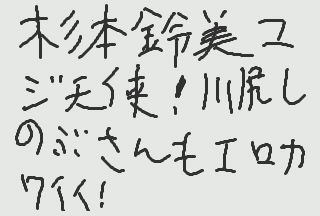 杉本鈴美マ
ジ天使！川尻し
のぶさんもエロカ
ワイイ！